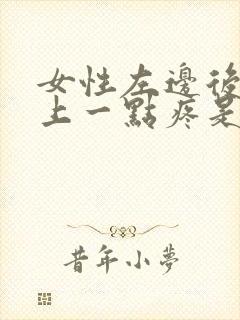 女性左邊後
上一點疼是
昔年小夢